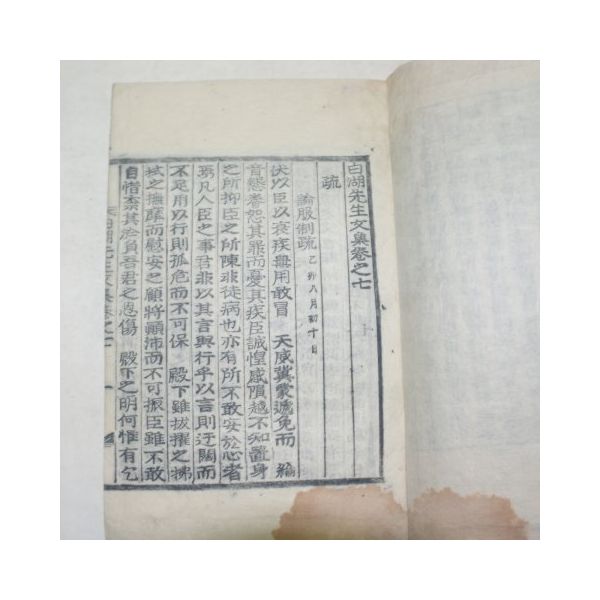 白湖先生文集卷之七
疏
論服制疏 乙卯八月初十日
伏以臣以衰疾無用敢冒 天威冀蒙遞免而 綸
音慈眷恕其罪而憂其疾臣誠惶感隕越不知置身
之所抑臣之所陳非徒病也亦有所不敢安於心者
務凡人臣之事君非以其言與行乎以言則迂闊而
不足用以行則孤危而不可保 殿下雖拔擢之拂
拭之撫摩而慰安之顧將顚沛而不可振臣雖不敢
自惜柰其於負吾君之恩傷 殿下之明何惟有乞
白湖先生文集卷之七